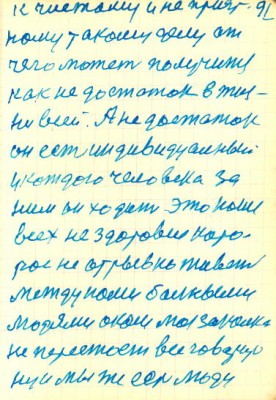 к чистому и не прият-
ному такому делу от
чего может получится
как не достаток в жиз-
ни всей. А не достаток
он ест индивидуальный
у каждого человека за
ним он ходит. Это наше
всех не здоровие кото-
рое не отрывно живет
между нами больными
людями окон
не перестает все говорит
ну и мы же есть люди